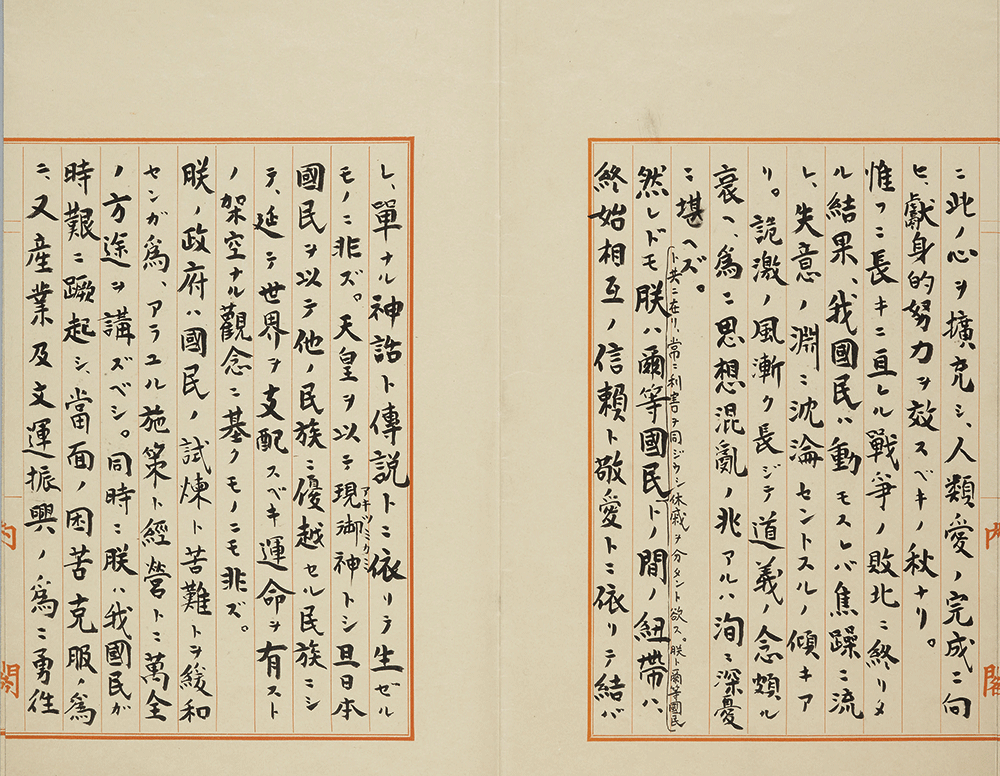 ニ此ノ心ヲ擴充シ、人類愛ノ完成ニ向
ヒ、獻身的努力ヲ效スベキノ秋ナリ。
惟フニ長キニ亘レル戰爭ノ敗北ニ終リタ
ル結果、我國民ハ動モスレバ焦躁ニ流
レ、失意ノ淵ニ沈淪セントスルノ傾キア
リ。詭激ノ風漸ク長ジテ道義ノ念頗ル
衰ヘ、爲ニ思想混亂ノ兆アルハ洵ニ深憂
ニ堪ヘズ。
然レドモ朕ハ爾等國民ト
ト共ニ在リ、常ニ利害ヲ同ジウシ休戚ヲ分タント欲ス。朕ト爾等國民
ノ間ノ紐帶ハ、
終始相互ノ信賴ト敬愛トニ依リテ結バ
レ、單ナル神話ト傳説トニ依リテ生ゼル
モノニ非ズ。天皇ヲ以テ現御神トシ且日本
アキツミカミ
國民ヲ以テ他ノ民族ニ優越セル民族ニシ
テ、延テ世界ヲ支配スベキ運命ヲ有スト
ノ架空ナル觀念ニ基クモノニモ非ズ。
朕ノ政府ハ國民ノ試煉ト苦難トヲ緩和
センガ爲、アラユル施策ト經營トニ萬全
ノ方途ヲ講ズベシ。同時ニ朕ハ我國民ガ
時艱ニ蹶起シ、當面ノ困苦克服ノ爲
ニ、又産業及文運振興ノ爲ニ勇往
内閣
内閣